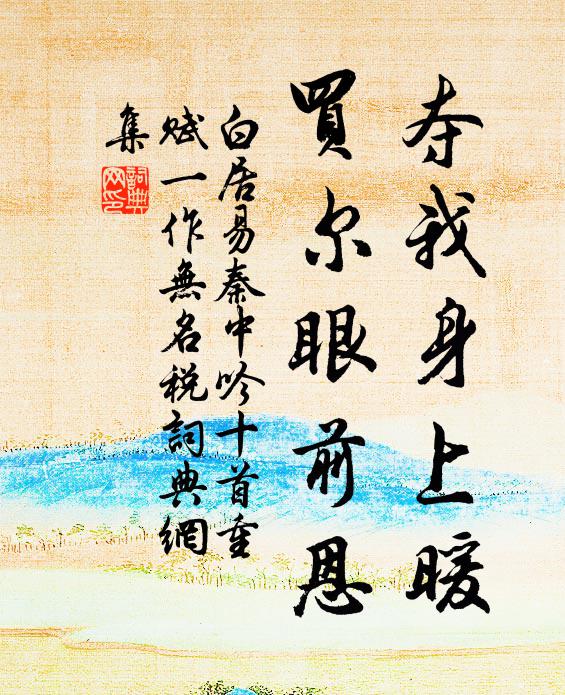 夺我身上暖
買尔眼前恩
白居易秦中吟十首重
赋一作無名税詞典網
集
詞典
网印